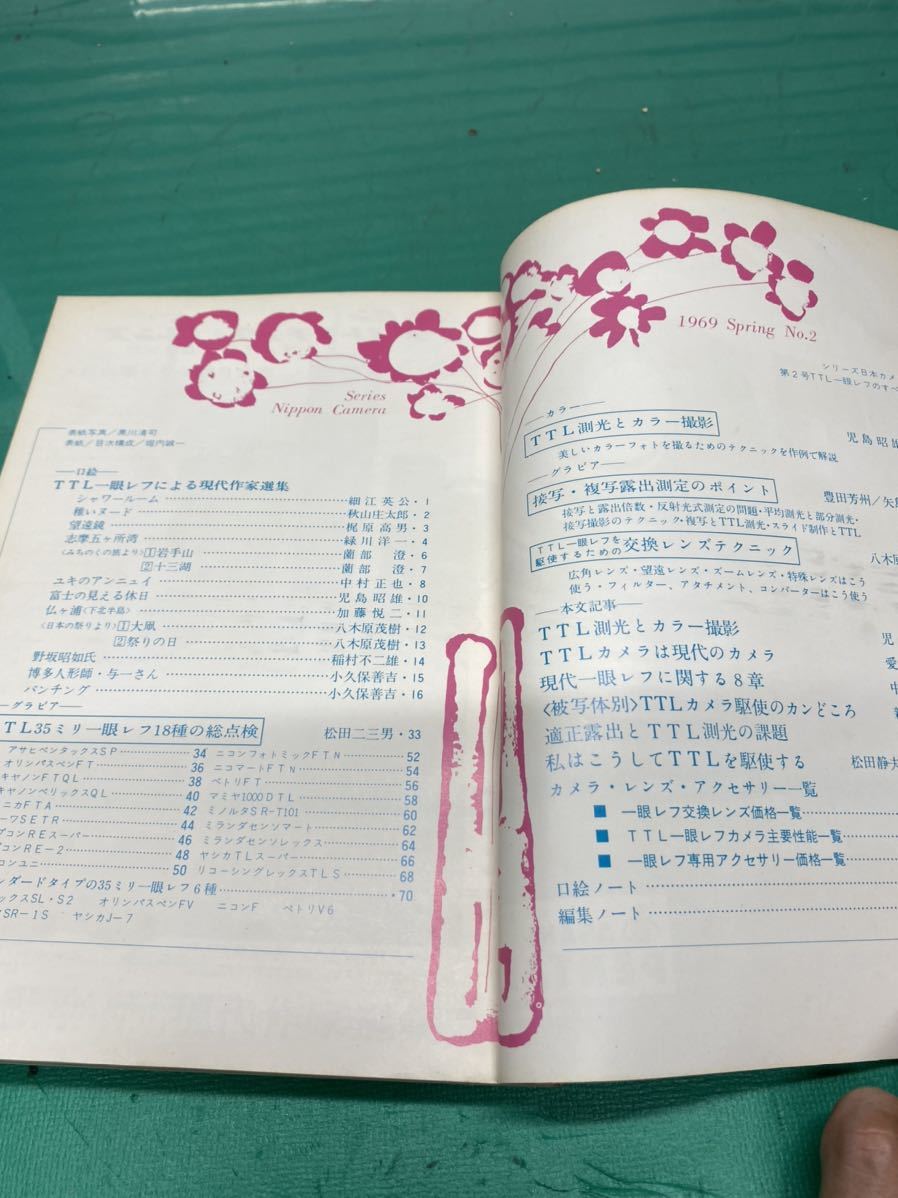 Series
Nippon Camera
表紙写真／黒川清司
表紙／目次構成／堀内誠一
―口絵―
TTL一眼レフによる現代作家選集
シャワールーム…細江英公・1
稚いヌード…秋山庄太郎・2
望遠鏡…梶原高男・3
志摩五ヶ所湾…緑川洋一・4
〈みちのくの旅より〉①岩手山…薗部 澄・6
②十三湖…薗部 澄・7
ユキのアンニュイ…中村正也・8
富士の見える休日…児島昭雄・10
仏ヶ浦〈下北半島〉…加藤悦二・11
〈日本の祭りより〉①大凧…八木原茂樹・12
②祭りの日…八木原茂樹・13
野坂昭如氏…稲村不二雄・14
博多人形師・与一さん…小久保善吉・15
パンチング…小久保善吉・16
―グラビア―
TL35ミリ一眼レフ18種の総点検 松田二三男・33
アサヒペンタックスSP…34
オリンパスペンFT…36
キヤノンFTQL…38
キヤノンペリックスQL…40
ニカFTA…42
ーワSETR…44
プコンREスーパー…46
コンRE-2…48
コンユニ…50
ニコンフォトミックFTN…52
ニコマートFTN…54
ペトリFT…56
マミヤ1000DTL…58
ミノルタSR-T101…60
ミランダセンソマート…62
ミランダセンソレックス…64
ヤシカTLスーパー…66
リコーシングレックスTLS…68
ンダードタイプの35ミリ一眼レフ6種…70
ックスSL・S2 オリンパスペンFV ニコンF ペトリV6
SR-1S ヤシカJ-7
1969 Spring No.2
シリーズ日本カメ
第2号TTL一眼レフのすべ
―カラー―
TTL測光とカラー撮影
児島昭雄
美しいカラーフォトを撮るためのテクニックを作例で解説
―グラビア―
接写・複写露出測定のポイント
豊田芳州／矢島
接写と露出倍数・反射光式測定の問題・平均測光と部分測光・
接写撮影のテクニック・複写とTTL測光・スライド制作とTTL
TTL一眼レフを駆使するための 交換レンズテクニック
八木原
広角レンズ・望遠レンズ・ズームレンズ・特殊レンズはこう
使う・フィルター、アタチメント、コンバーターはこう使う
―本文記事―
TTL測光とカラー撮影 児
TTLカメラは現代のカメラ 愛
現代一眼レフに関する8章 中
〈被写体別〉TTLカメラ駆使のカンどころ
適正露出とTTL測光の課題
私はこうしてTTLを駆使する 松田静夫
カメラ・レンズ・アクセサリー一覧
■ 一眼レフ交換レンズ価格一覧
■ TTL一眼レフカメラ主要性能一覧
■ 一眼レフ専用アクセサリー価格一覧
口絵ノート
編集ノート